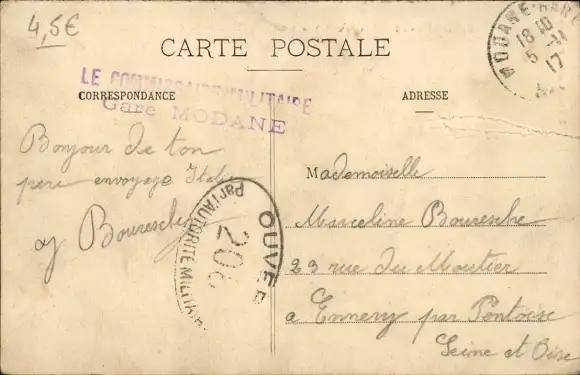 4,5€
CARTE POSTALE
MODANE-GARE
18 10
5-11
17
LE COMMISSAIRE MILITAIRE
Gare MODANE
CORRESPONDANCE
ADRESSE
Bonjour de ton
pere envoyage Italie
Bouresche
OUVERT
Par l'AUTORITÉ MILITAIRE
206
Mademoiselle
Marceline Bouresche
23 rue du Moutier
a Ennery par Pontoise
Seine et Oise